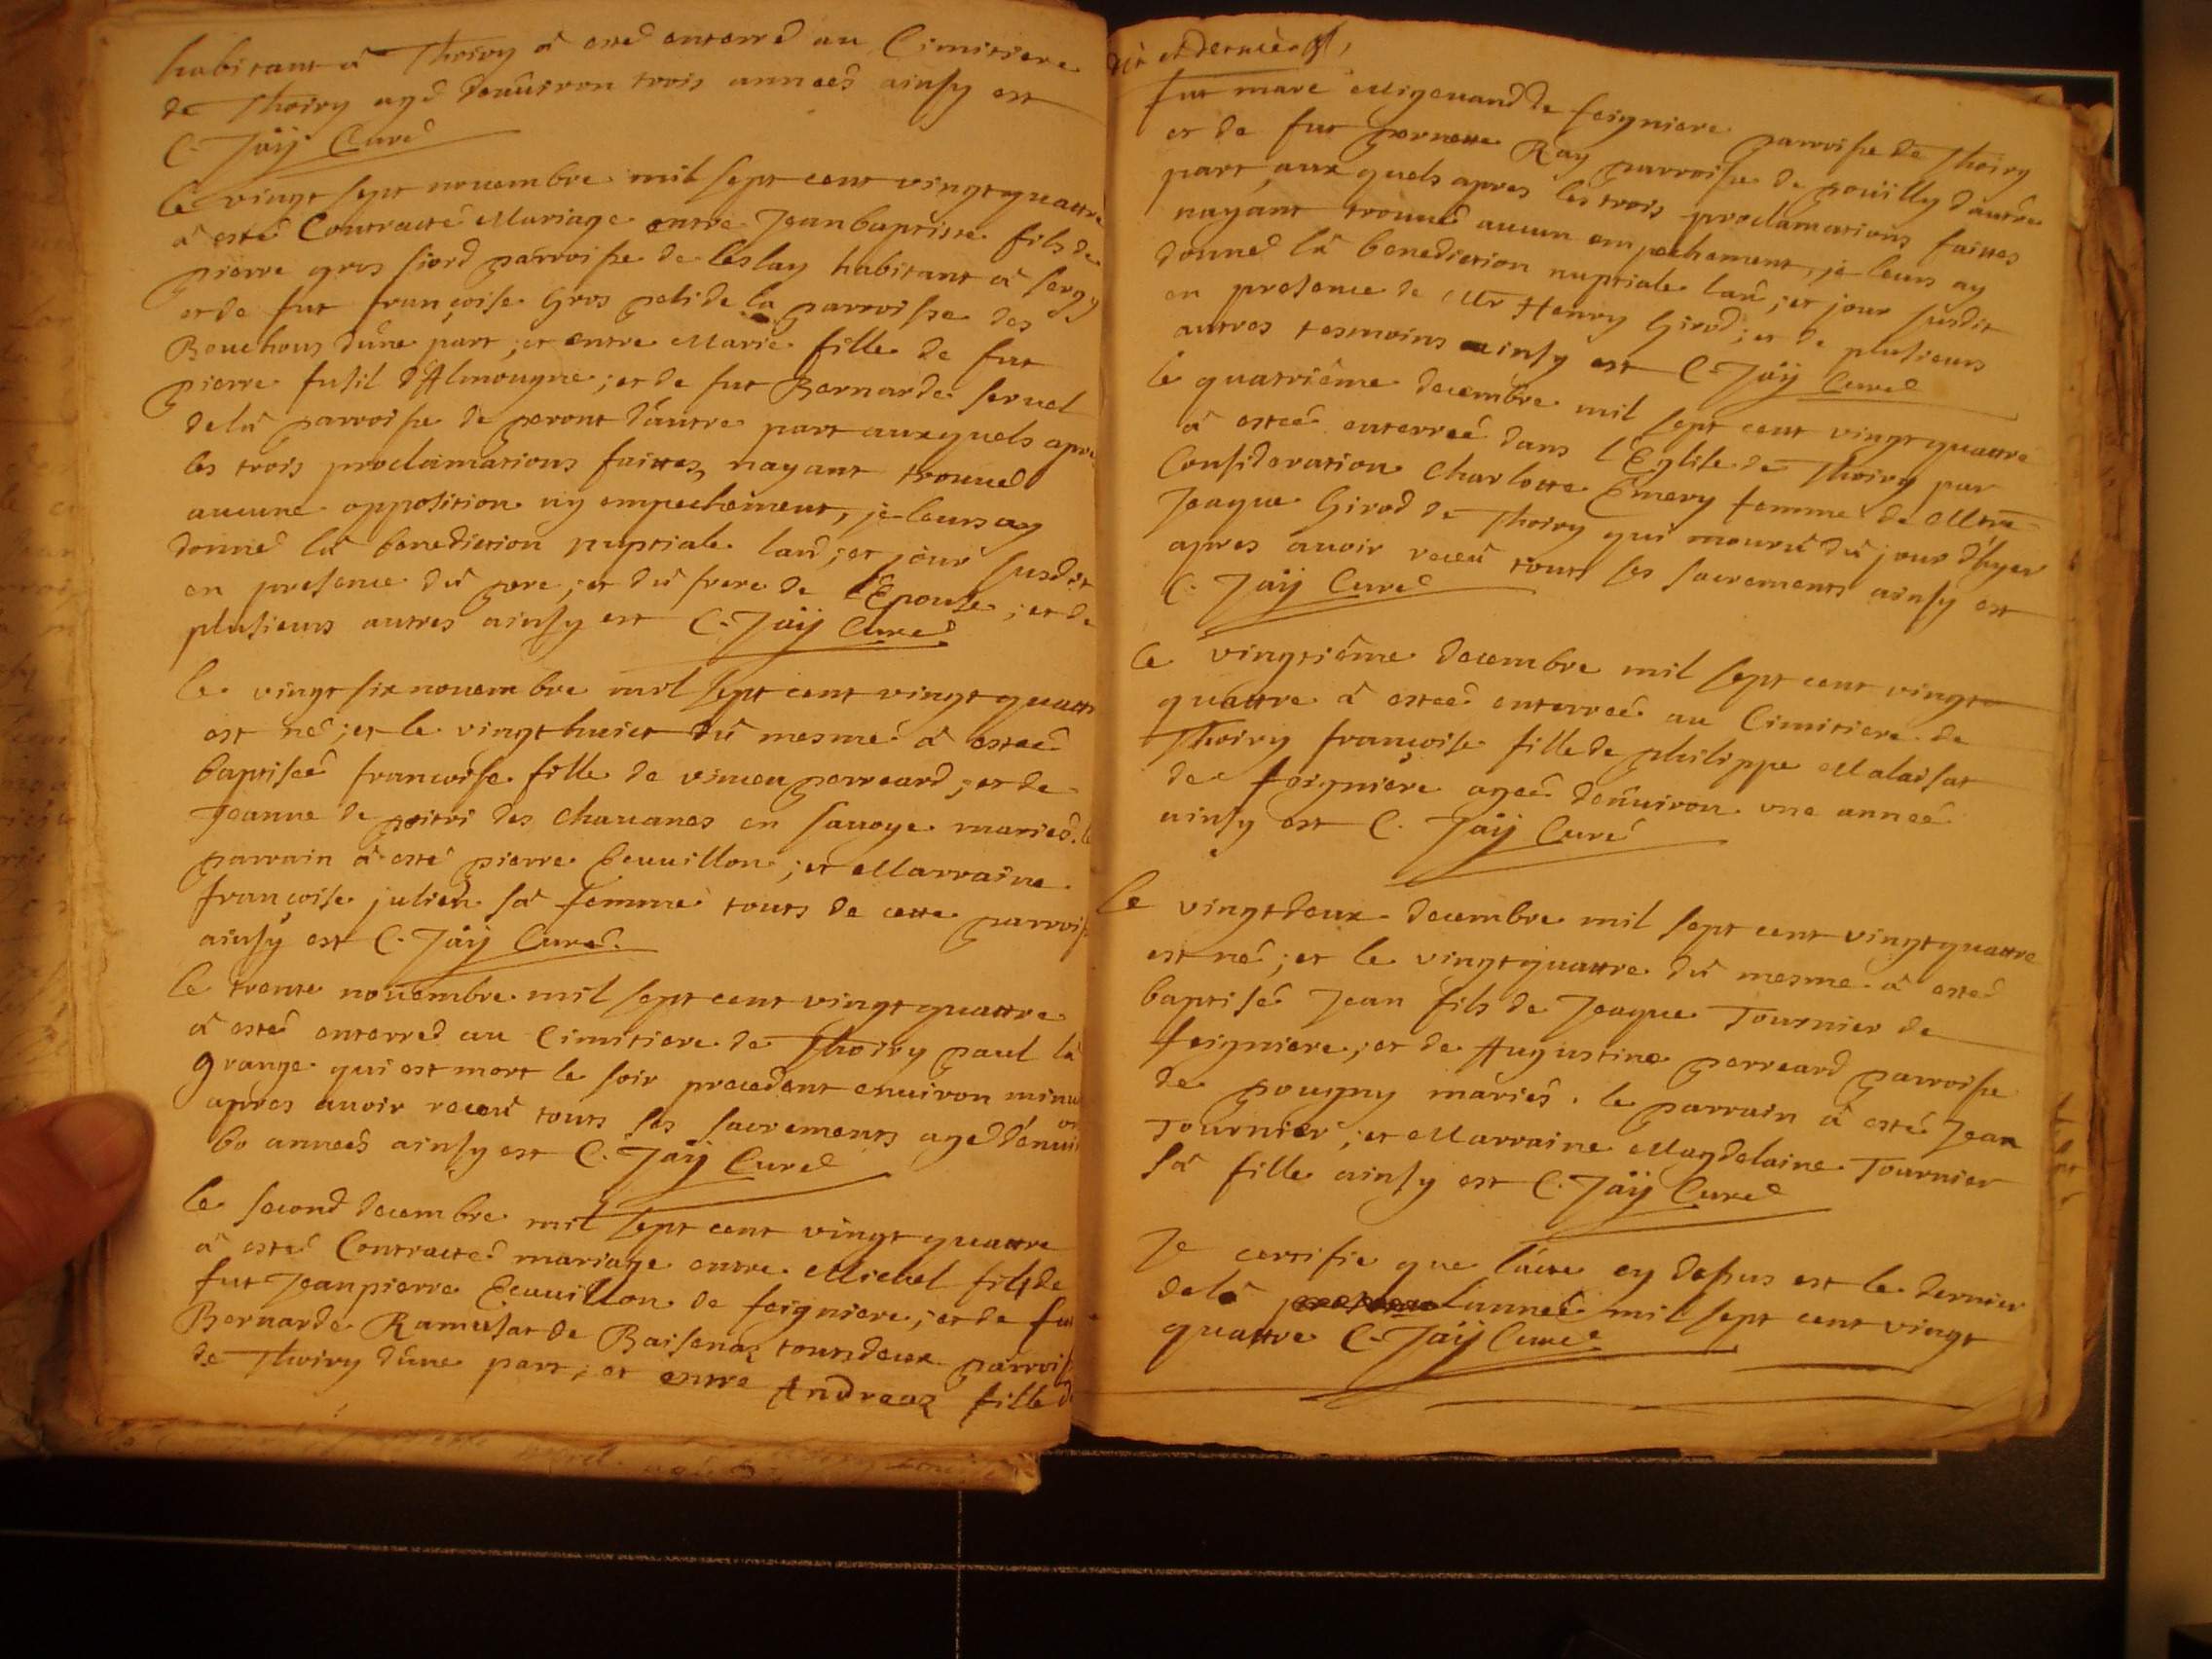 habitant â Thoiry â esté enterré au Cimitiere
de Thoiry agé denuiron trois années ainsy est
C. Jaÿ Curé
le vingt sept nouembre mil sept cent vingt quattre
â esté Contracté Mariage entre Jean baptiste fils de
pierre gros fiord parroisse de leslay habitant â sergy
et de fut françoise Gros peli de la parroisse des
Bouchous d'une part ; et entre Marie fille de fut
pierre fusil d'Almougne ; et de fut Bernarde seruel
de lâ parroisse de peront d'autre part auxquels apres
les trois proclamations faittes nayant trouué
aucune opposition ny empechement, je leurs ay
donné lâ benediction nuptiale lan ; et jour susdit
en presence du pere ; et du frere de l'Epouse ; et de
plusieurs autres ainsy est C. Jaÿ Curé
le vingt six nouembre mil sept cent vingt quattre
est né ; et le vingt huict du mesme â esteé
baptiseé francoise fille de vincen perreard ; et de
Jeanne de poitri des chauanes en sauoye mariés. le
parrain â esté pierre Ecuuillon ; et Marraine
françoise julien sâ femme touts de cette parroisse
ainsy est C. Jaÿ Curé
le trente nouembre mil sept cent vingt quattre
â esté enterré au Cimitiere de Thoiry paul lâ
grange qui est mort le soir precedent enuiron minuit
apres auoir receu touts ses sacrements agé d'enuiron
60 anneés ainsy est C. Jaÿ Curé
le second decembre mil sept cent vingt quattre
â esté Contracté mariage entre Michel fils de
fut Jean pierre Ecuuillon de feigniere ; et de fut
Bernarde Ramusat de Baisenaz touts deux parroisse
de Thoiry d'une part ; et entre Andreaz fille de
dix et dernier
fut marc Migouand de feigniere parroisse de Thoiry
et de fut pernette Ray parroisse de pouilly d'autre
part, aux quels apres les trois proclamations faittes
nayant trouué aucun empechement, je leurs ay
donné lâ benediction nuptiale lan ; et jour susdit
en presence de Mr Henry Girod ; et de plusieurs
autres tesmoins ainsy est C. Jaÿ Curé
le quatriême decembre mil sept cent vingt quattre
â esteé enterreé dans l'Eglise de Thoiry par
Consideration Charlotte Emery femme de Mtre
Jeaque Girod de Thoiry qui mouru du jour d'hyer
apres auoir receu touts ses sacrements ainsy est
C. Jaÿ Curé
le vingtiême decembre mil sept cent vingt
quattre â esteé enterreé au Cimitiere de
Thoiry françoise fille de philippe Malaisat
de feigniere ageé denuiron vne anneé
ainsy est C. Jaÿ Curé
le vingt deux decembre mil sept cent vingt quattre
est né ; et le vingt quattre du mesme â esté
baptisé Jean fils de Jeaque Tournier de
feigniere ; et de Augustine perreard parroisse
de pougny mariés. le parrain â esté Jean
Tournier ; et Marraine Magdelaine Tournier
sâ fille ainsy est C. Jaÿ Curé
Je certifie que l'acte cy dessus est le dernier
de lâ lanneé mil sept cent vingt
quattre C. Jaÿ Curé